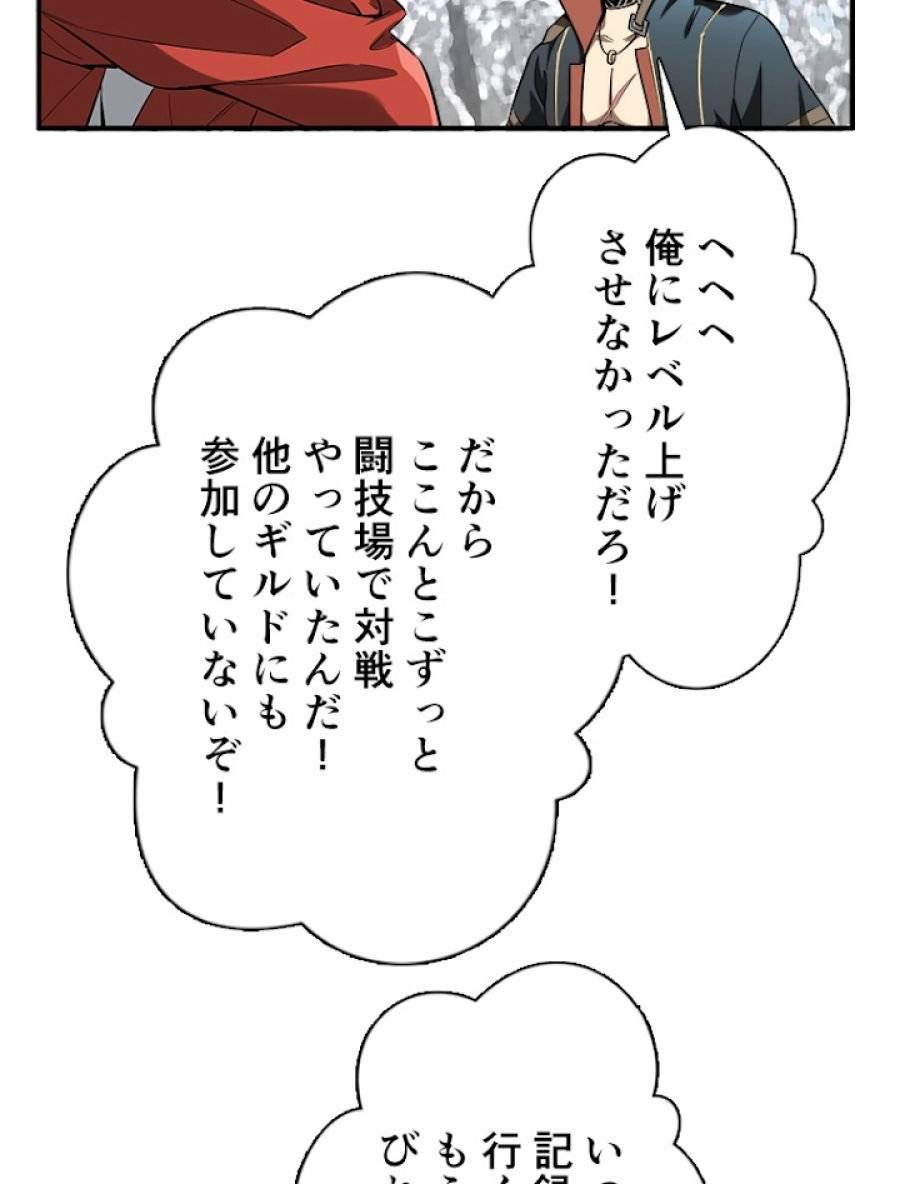 へへへ
俺にレベル上げ
させなかっただろ！
だから
ここんとこずっと
闘技場で対戦
やっていたんだ！
他のギルドにも
参加していないぞ！
い
記
行
も
び